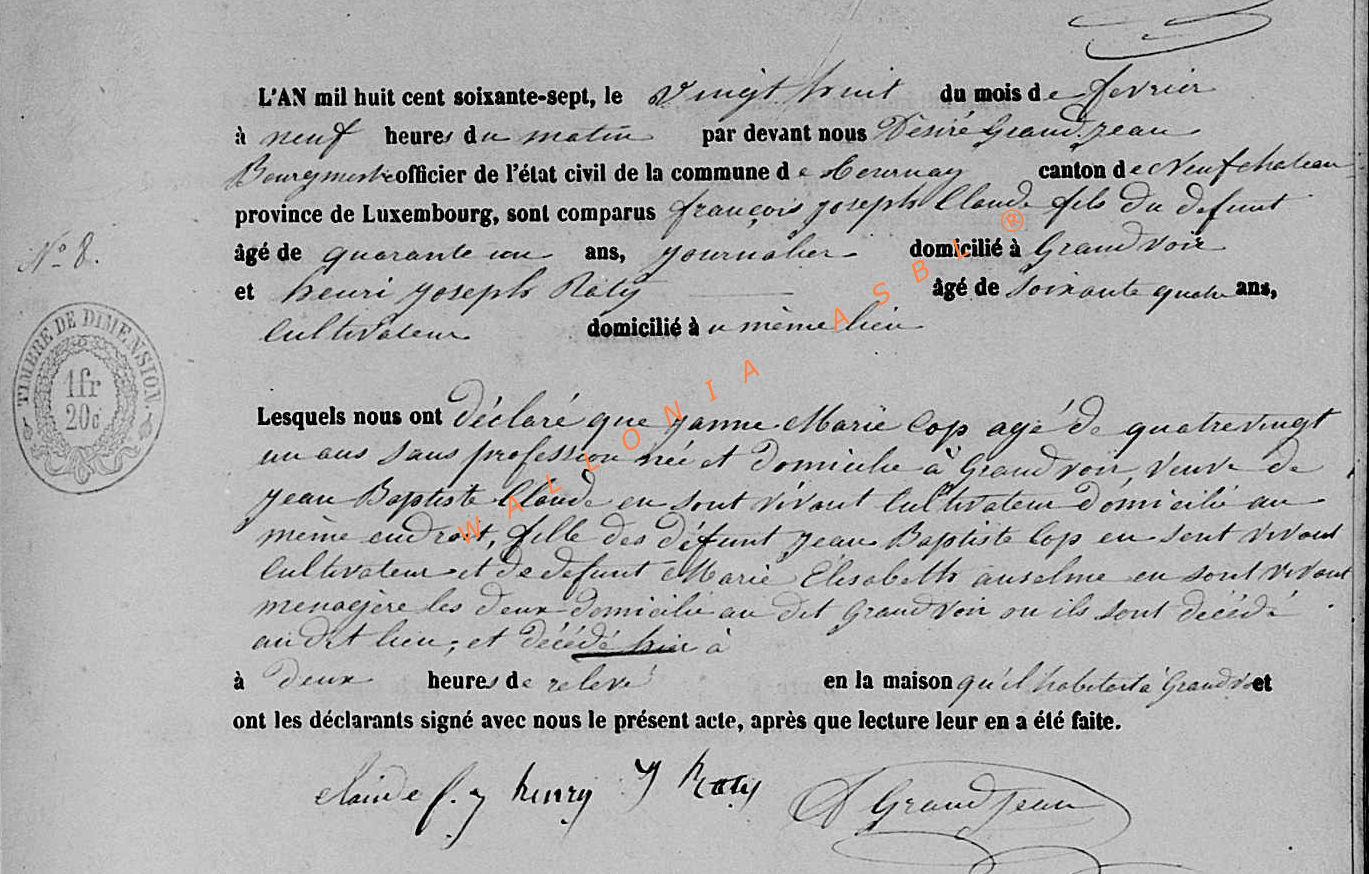 L'AN mil huit cent soixante-sept, le vingt huit du mois de fevrier
à neuf heures du matin par devant nous Désiré Grandjean
Bourgmestre officier de l'état civil de la commune de Tournay canton de Neufchateau
province de Luxembourg, sont comparus françois joseph Claude fils du defunt
N° 8.
âgé de quarante un ans, journalier domicilié à Grandvoir
et henri joseph Roty âgé de soixante quatre ans,
Cultivateur domicilié à u même lieu
TIMBRE DE DIMENSION.
1fr
20c
Lesquels nous ont déclaré que janne Marie Cop agé de quatrevingt
un ans sans profession née et domicilie à Grandvoir veuve de
jean Baptiste Claude en sont vivant Cultivateur domicilié au
même endroit, fille des défunt jean Baptiste Cop en sont vivant
Cultivateur et de defunt Marie Elisabeth anselme en sont vivant
menagère les deux domicilié au dit Grandvoir ou ils sont décédé
au dit lieu, et décédé hier à
à deux heures de relevé en la maison qu'il habitait à Grandvoir et
ont les déclarants signé avec nous le présent acte, après que lecture leur en a été faite.
Claude f. j henry J Roty D Grandjean
WALLONIA ASBL ®